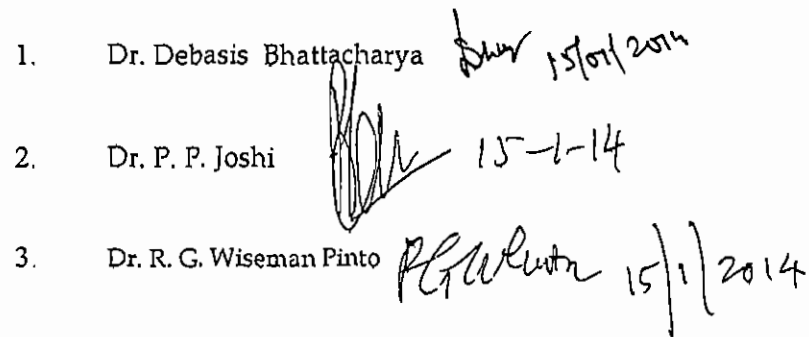 1. Dr. Debasis Bhattacharya 15/01/2014
2. Dr. P. P. Joshi 15-1-14
3. Dr. R. G. Wiseman Pinto 15/1/2014